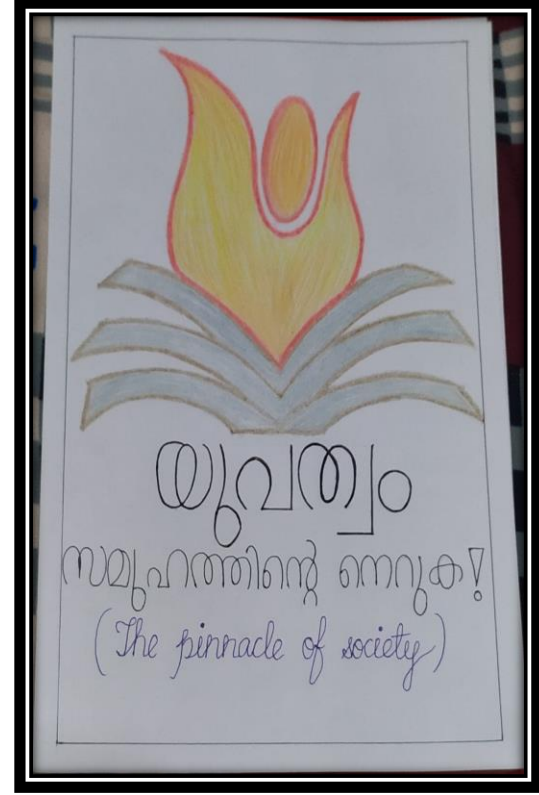 യുവത്വം
സമൂഹത്തിന്റെ നെറുക!
(The pinnacle of society)